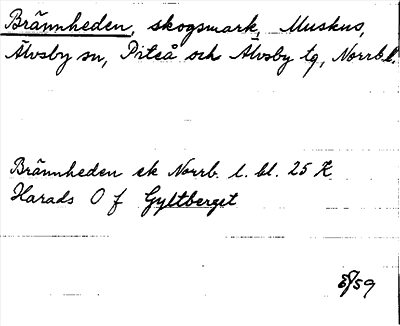 Brännheden, skogsmark, Muskus,
Älvsby sn, Piteå och Älvsby tg, Norrb.l.
Brännheden ek Norrb. l. bl. 25 K
Harads O f Gyltberget
/59